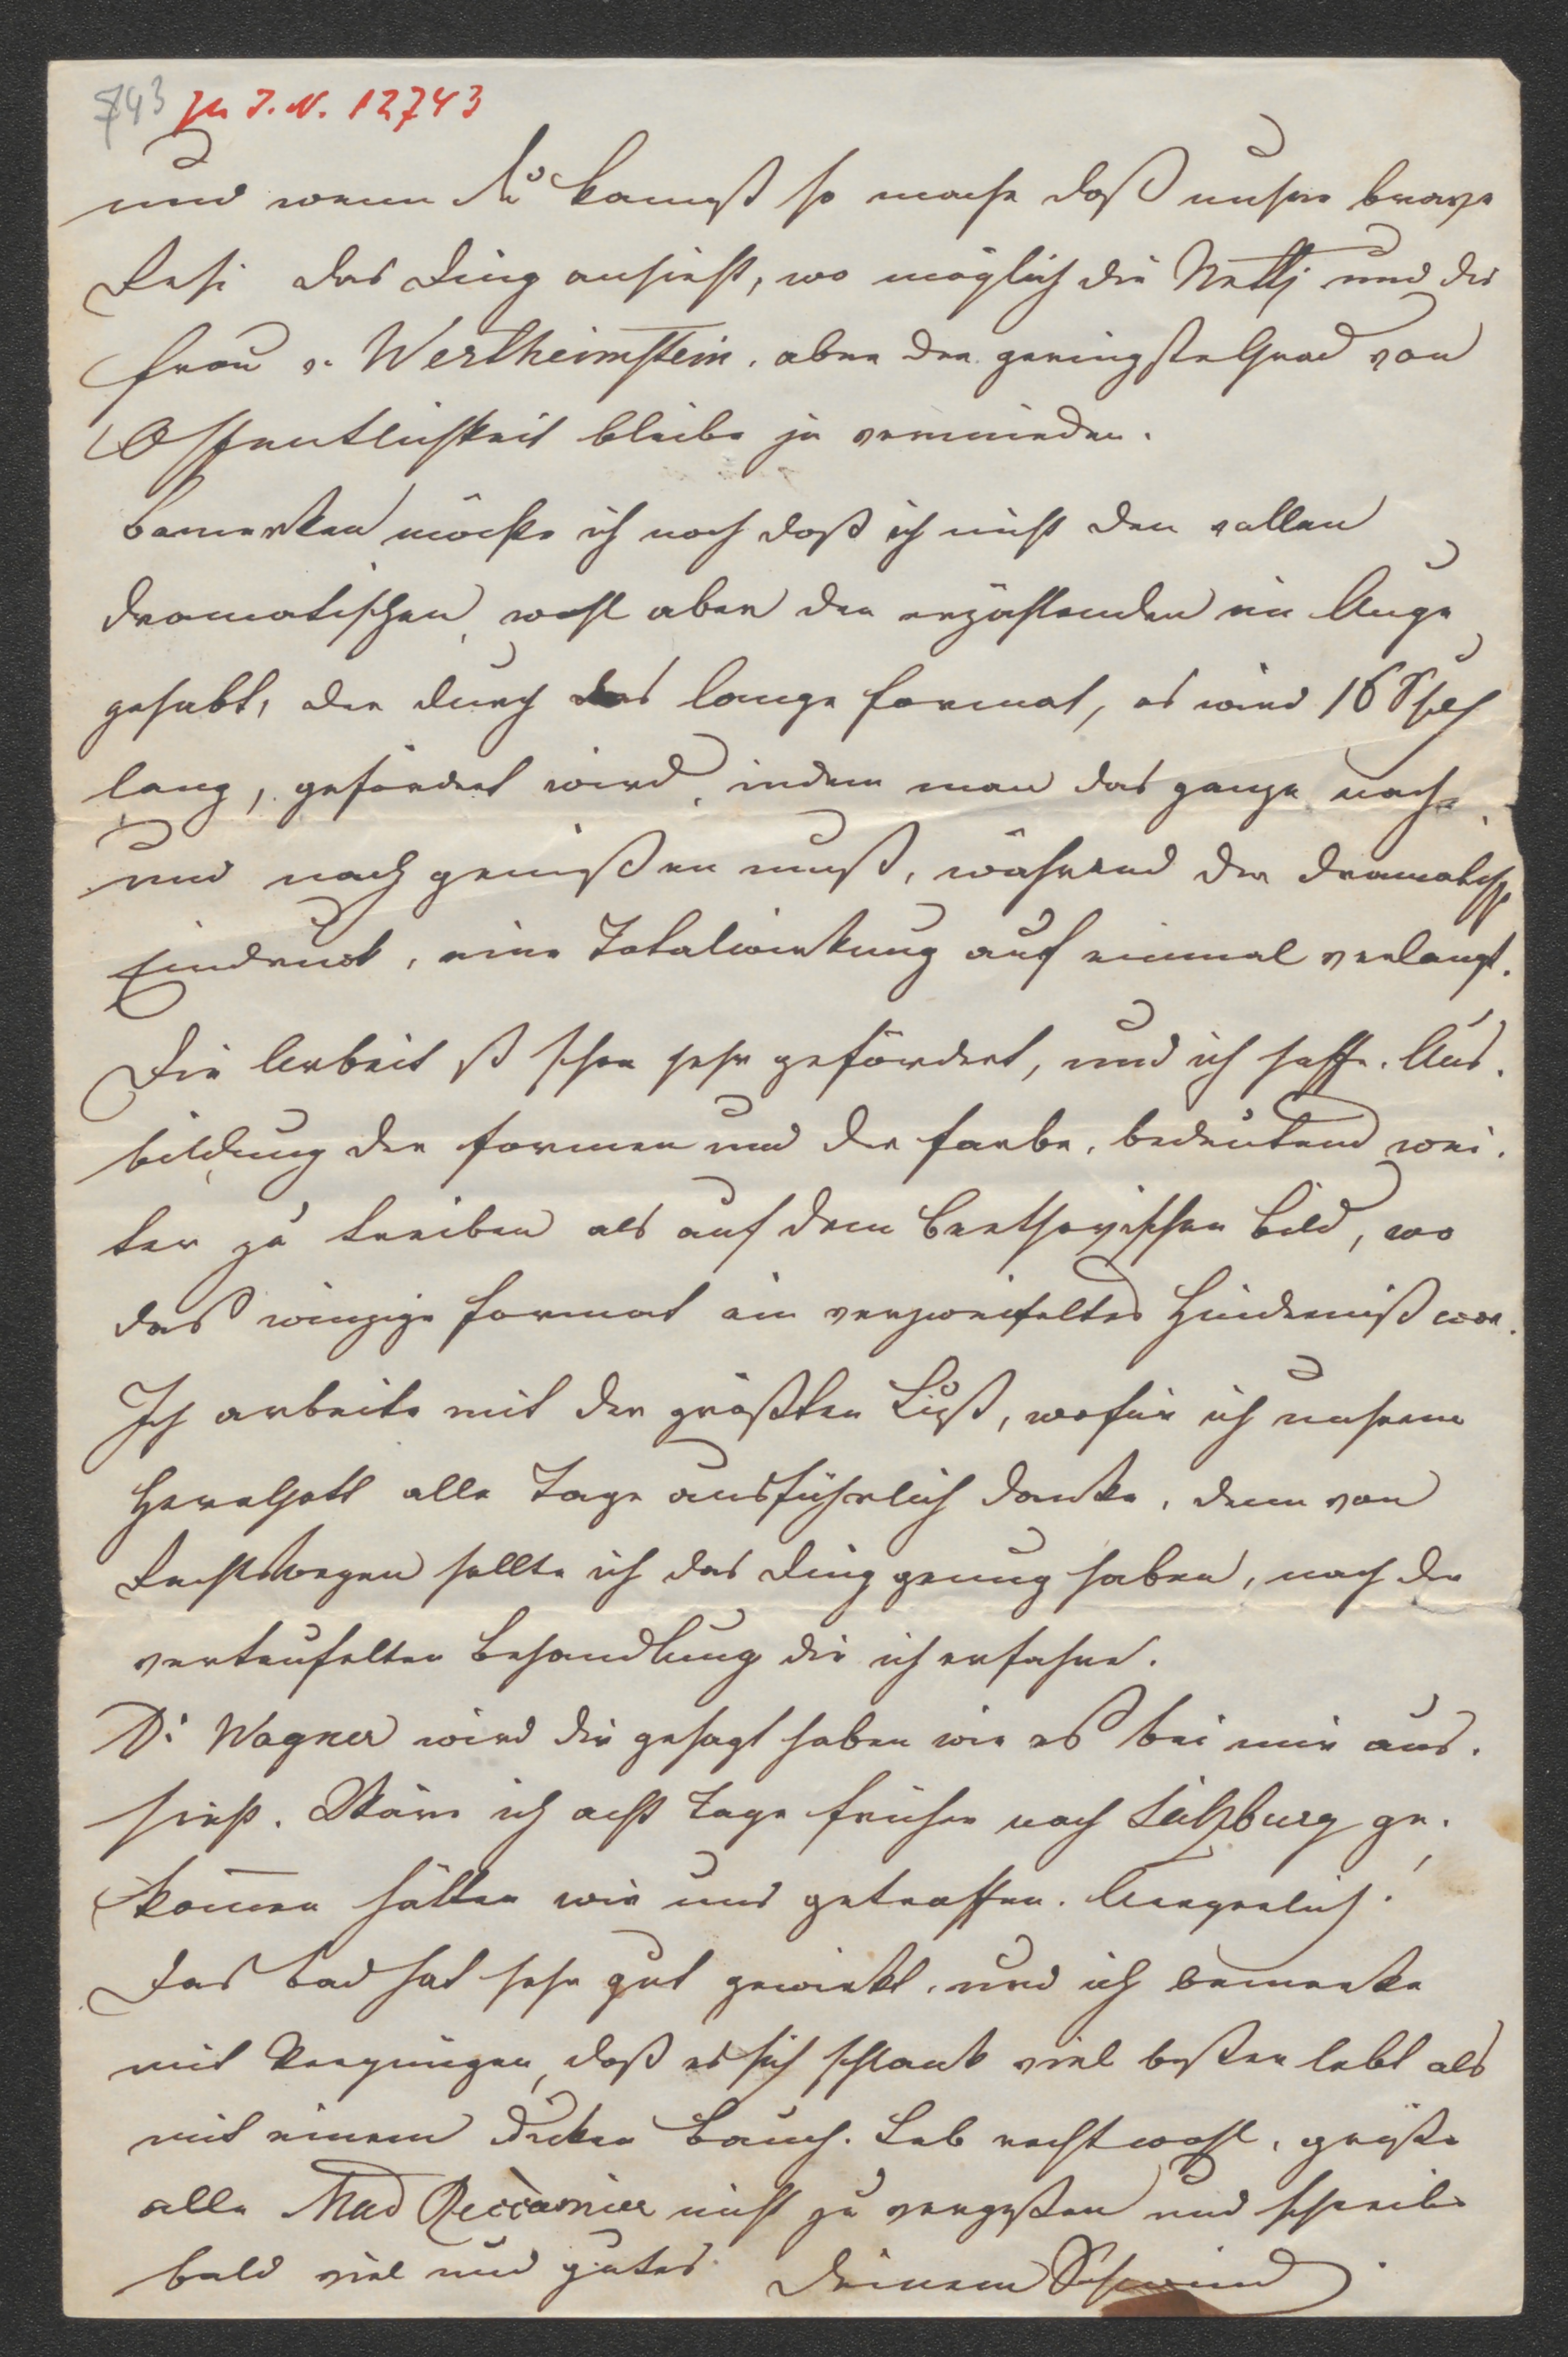 743 zu I. N. 12743
und wenn du kannst so mache daß unsere brave
Resi das Ding ansieht, wo möglich die Netti und die
Frau v. Wertheimstein, aber der geringste Grad von
Öffentlichkeit bleibe ja vermieden.
Bemerken möchte ich noch daß ich nicht den vollen
dramatischen, wohl aber den erzählenden im Auge
gehabt, der durch das lange Format, es wird 16 Schuh
lang, gefördert wird, indem man das ganze nach
und nach genießen muß, während der dramatische
Eindruck, eine Totalwirkung auf einmal verlangt.
Die Arbeit ist schon sehr gefördert, und ich hoffe. Aus-
bildung der Formen und der Farbe, bedeutend wei-
ter zu treiben als auf dem Beethovischen Bild, wo
das winzige Format ein verzweifeltes Hinderniß war.
Ich arbeite mit der größten Lust, wofür ich unserm
Herrgott alle Tage ausführlich danke, denn von
Rechtswegen sollte ich das Ding genug haben, nach der
verteufelten Behandlung die ich erfahre.
Dr Wagner wird dir gesagt haben wie es bei mir aus-
sieht. Wäre ich acht Tage früher nach Salzburg ge-
kommen hätten wir uns getroffen. Aergerlich!
Das Bad hat sehr gut gewirkt, und ich bemerke
mit Vergnügen, daß es sich schlank viel besser lebt als
mit einem dicken Bauch. Leb recht wohl, grüße
alle Mad Reccamier nicht zu vergessen und schreibe
bald viel und gutes Deinem Schwind